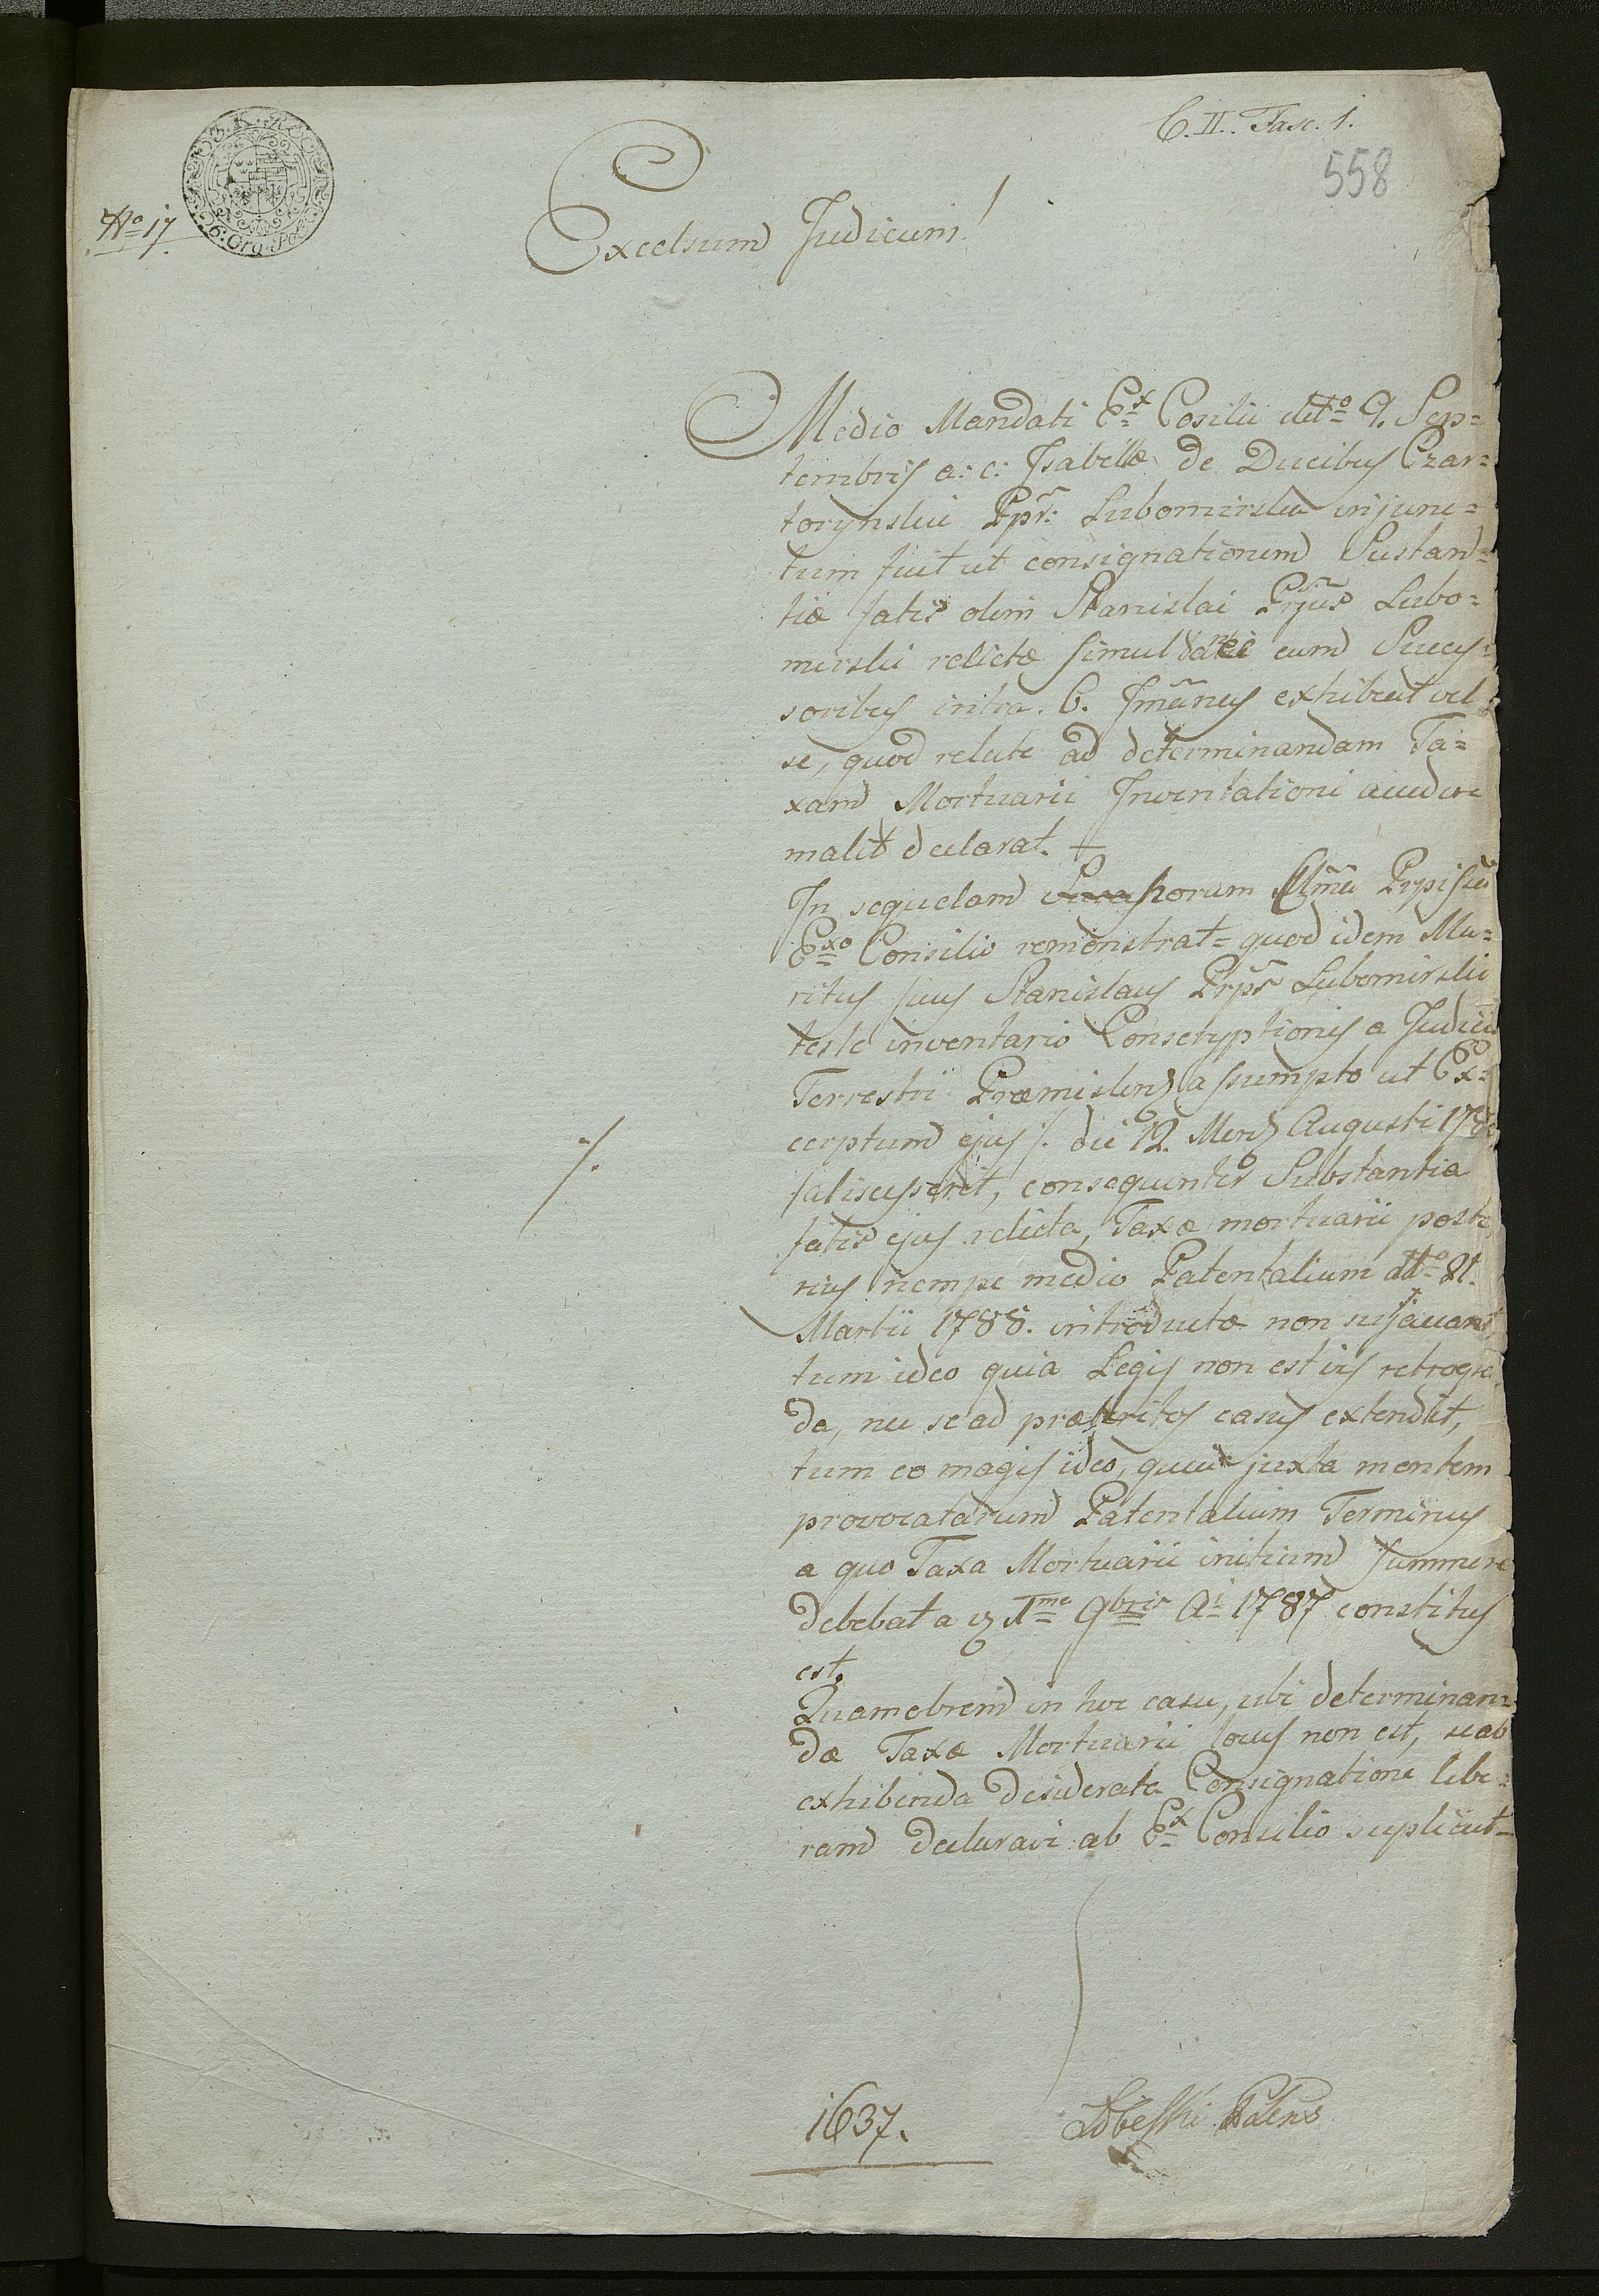 C. II. Fasc. 1.
558
No 17.
3. K.
6. Gra. Pol
Excelsum Judicium!
Medio Mandati Ex Cosilii ddto 9. Sep=
tembris a: c: Isabellæ de Ducibus Czar=
torynskii Ppῖs: Lubomirska injunc=
tum fuit ut consignationem Sustan=
tiæ fatis olim Stanislai Prῖpis Lubo=
mirskii relictæ simultanee cum Succes=
soribus intra. 6. Imanas exhibeat vel
se, quod relate ad determinandam Ta=
xam Mortuarii Inventationi accedere
malit declarat.
In sequelam horum Illma Prpissa
Exo Consilio remonstrat= quod idem Ma=
ritus suus Stanislaus Prps Lubomirski
teste inventario Conscryptionis a Judicio
Terrestri Præmislen assumpto ut Ex=
cerptum ejus ·/. die 12. Mens Augusti 178
fatis cesserit, consequenter Substantia
fatis ejus relicta, Taxæ mortuarii poste
rius nempe medio Patentalium ddto 21.
·/.
Martii 1788. introductæ non subjaceant
tum ideo quia Legis non est vis retrogra
da, nec se ad præteritos casus extendit,
tum eo magis ideo, quia juxta mentem
provocatarum Patentalium Terminus
a quo Taxa Mortuarii initium summere
debebat a 1me 9bris Ai 1787 constitus
est.
Quamobrem in hoc casu, ubi determinan=
dæ Taxæ Mortuarii locus non est, se ab
exhibenda desiderata Consignatione libe=
ram declarari ab Ex Consilio suplicat=
1637.